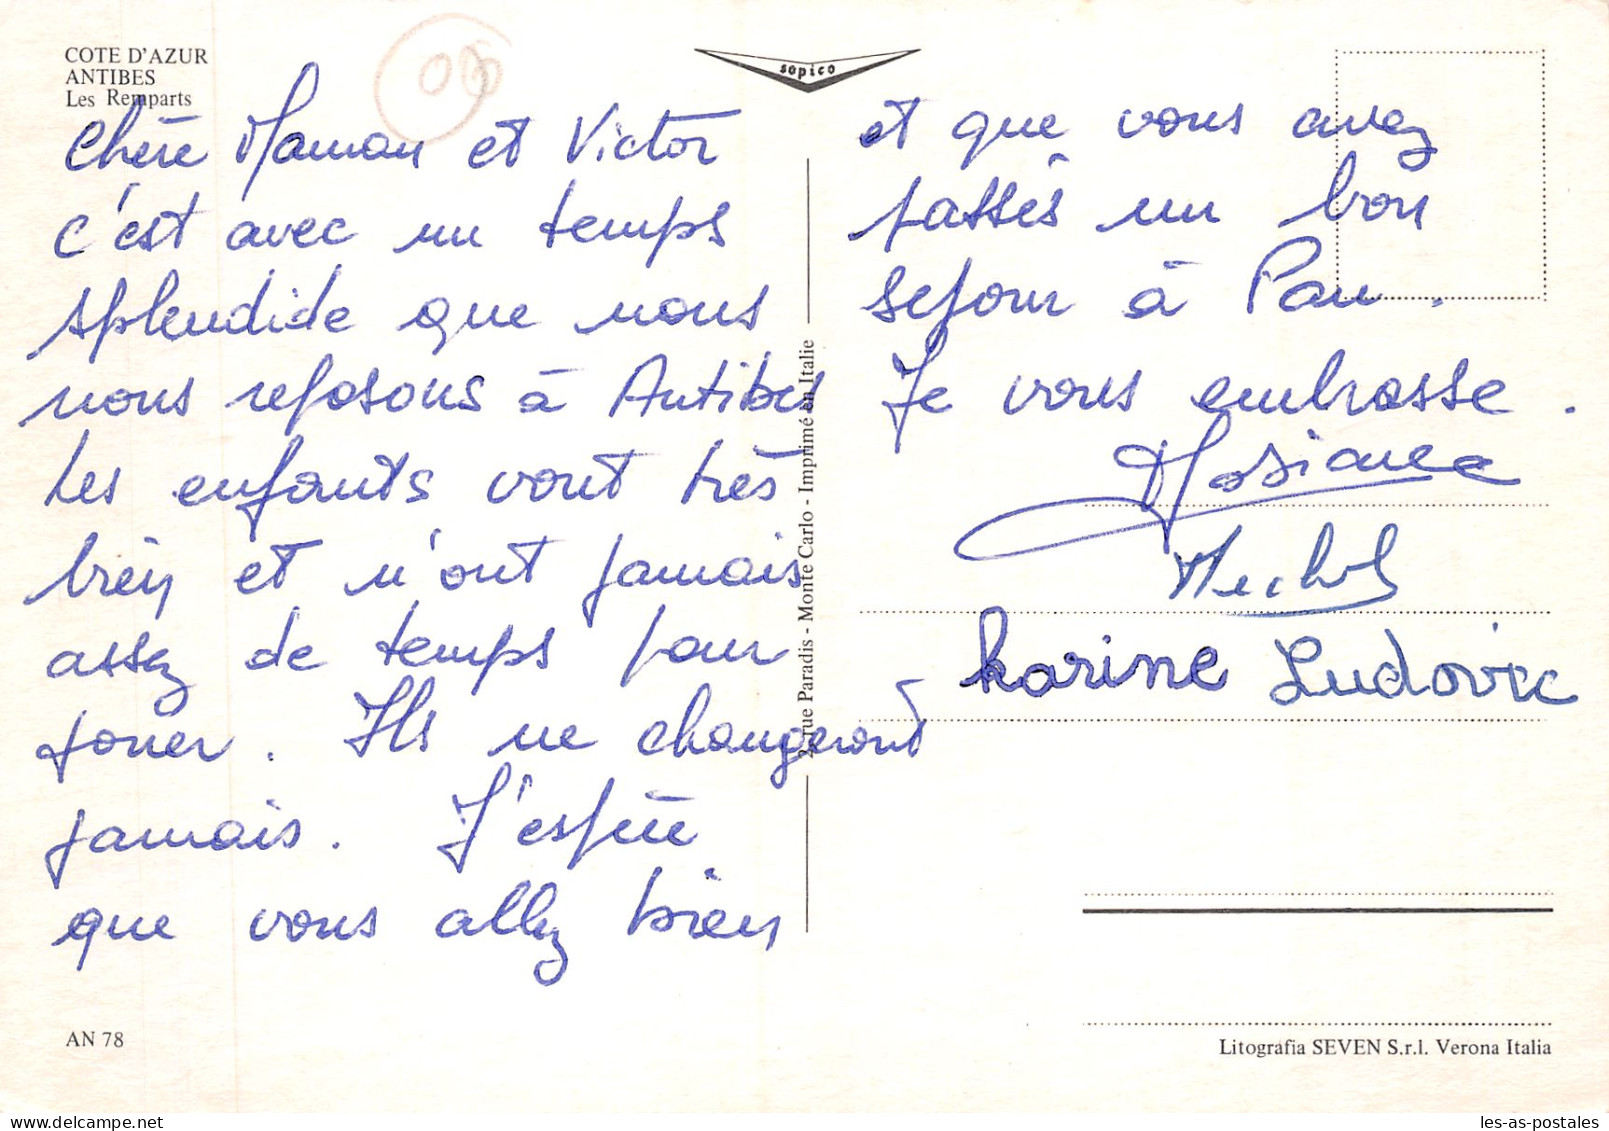 COTE D'AZUR
ANTIBES
Les Remparts
06
sopico
Chère Maman et Victor
c'est avec un temps
splendide que nous
nous reposons à Antibes
Les enfants vont très
bien et n'ont jamais
assez de temps pour
jouer. Ils ne changeront
jamais. J'espère
que vous allez bien
et que vous avez
passés un bon
sejour à Pau.
Je vous embrasse.
Josiane
Michel
Karine Ludovic
2, rue Paradis - Monte Carlo - Imprimé en Italie
AN 78
Litografia SEVEN S.r.l. Verona Italia
les-as-postales